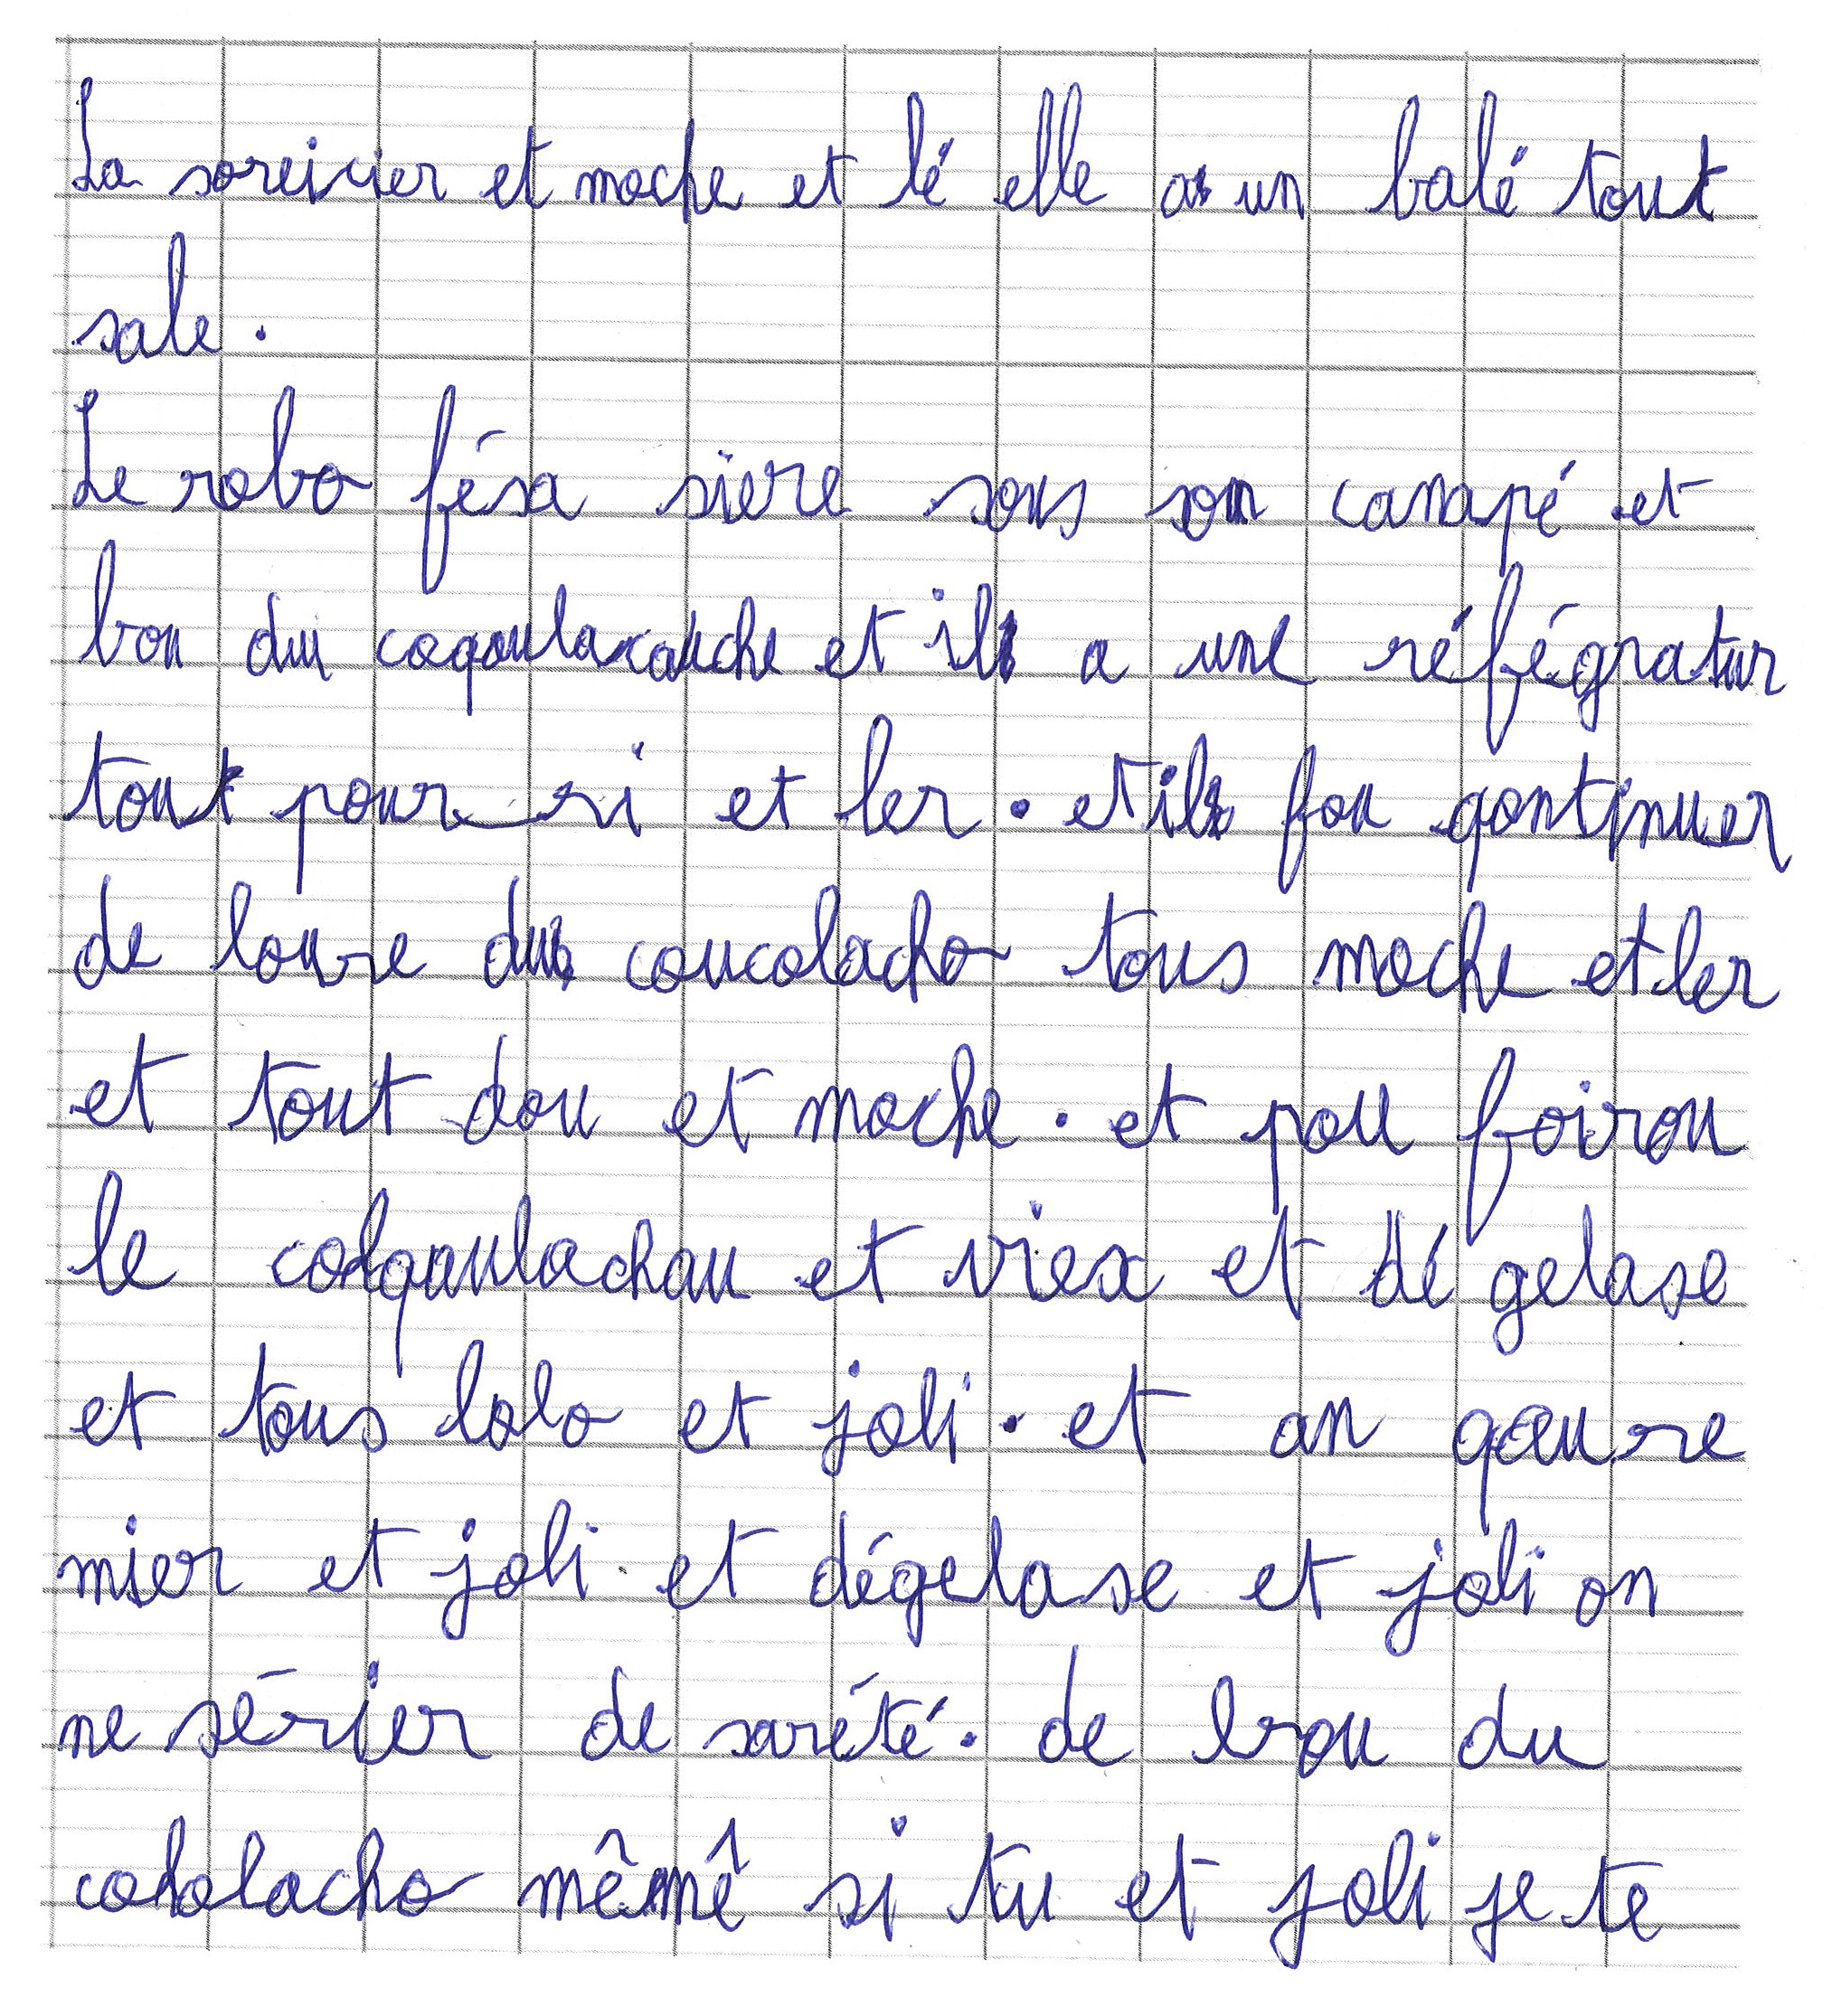 La soreicier et moche et lé elle a un balé tout
sale.
Le robo fésa siere sous son canapé et
bou du coqoulacauche et il a une réfégratur
tout pour ri et ler. et il fou qontinuer
de loure du coucolacho tous moche et ler
et tout dou et moche. et pou foirou
le colqoulachau et viex et dé gelase
et tous lolo et joli. et an qoure
mier et joli. et dégelase et joli on
ne sérier de sarété. de brou du
cokolacho mêmê si tu et joli je te